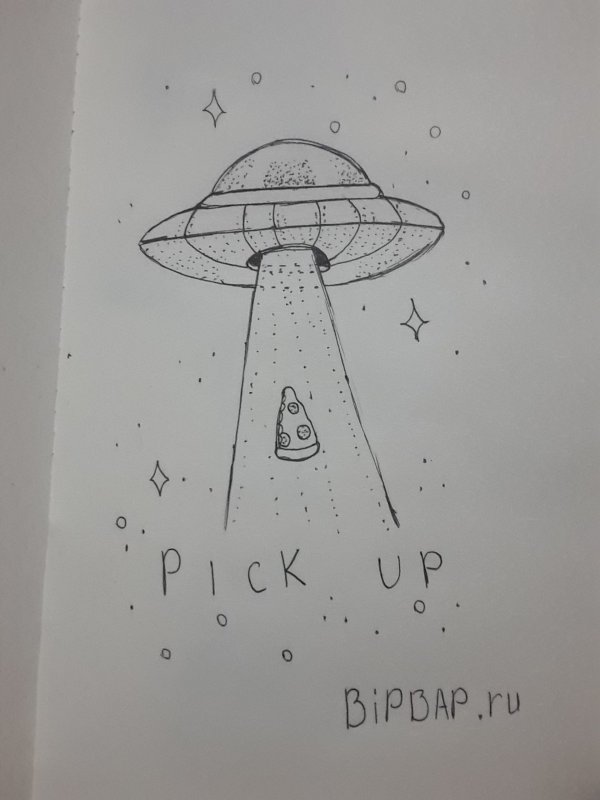 PICK UP
BiPBAP.ru